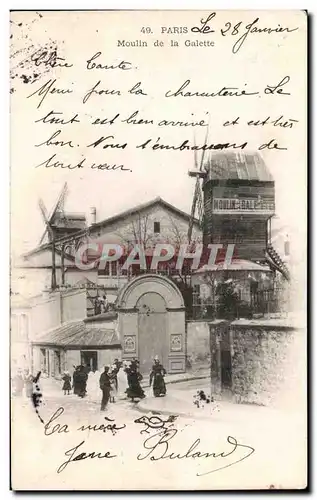 49. PARIS Le 28 Janvier
Moulin de la Galette
Chère Tante.
Merci pour la charcuterie. Le
tout est bien arrivé et est très
bon. Nous t'embrassons de
tout cœur.
MOULIN DE LA GALETTE
CARTOGRAPHILIE
Ta nièce
Jane